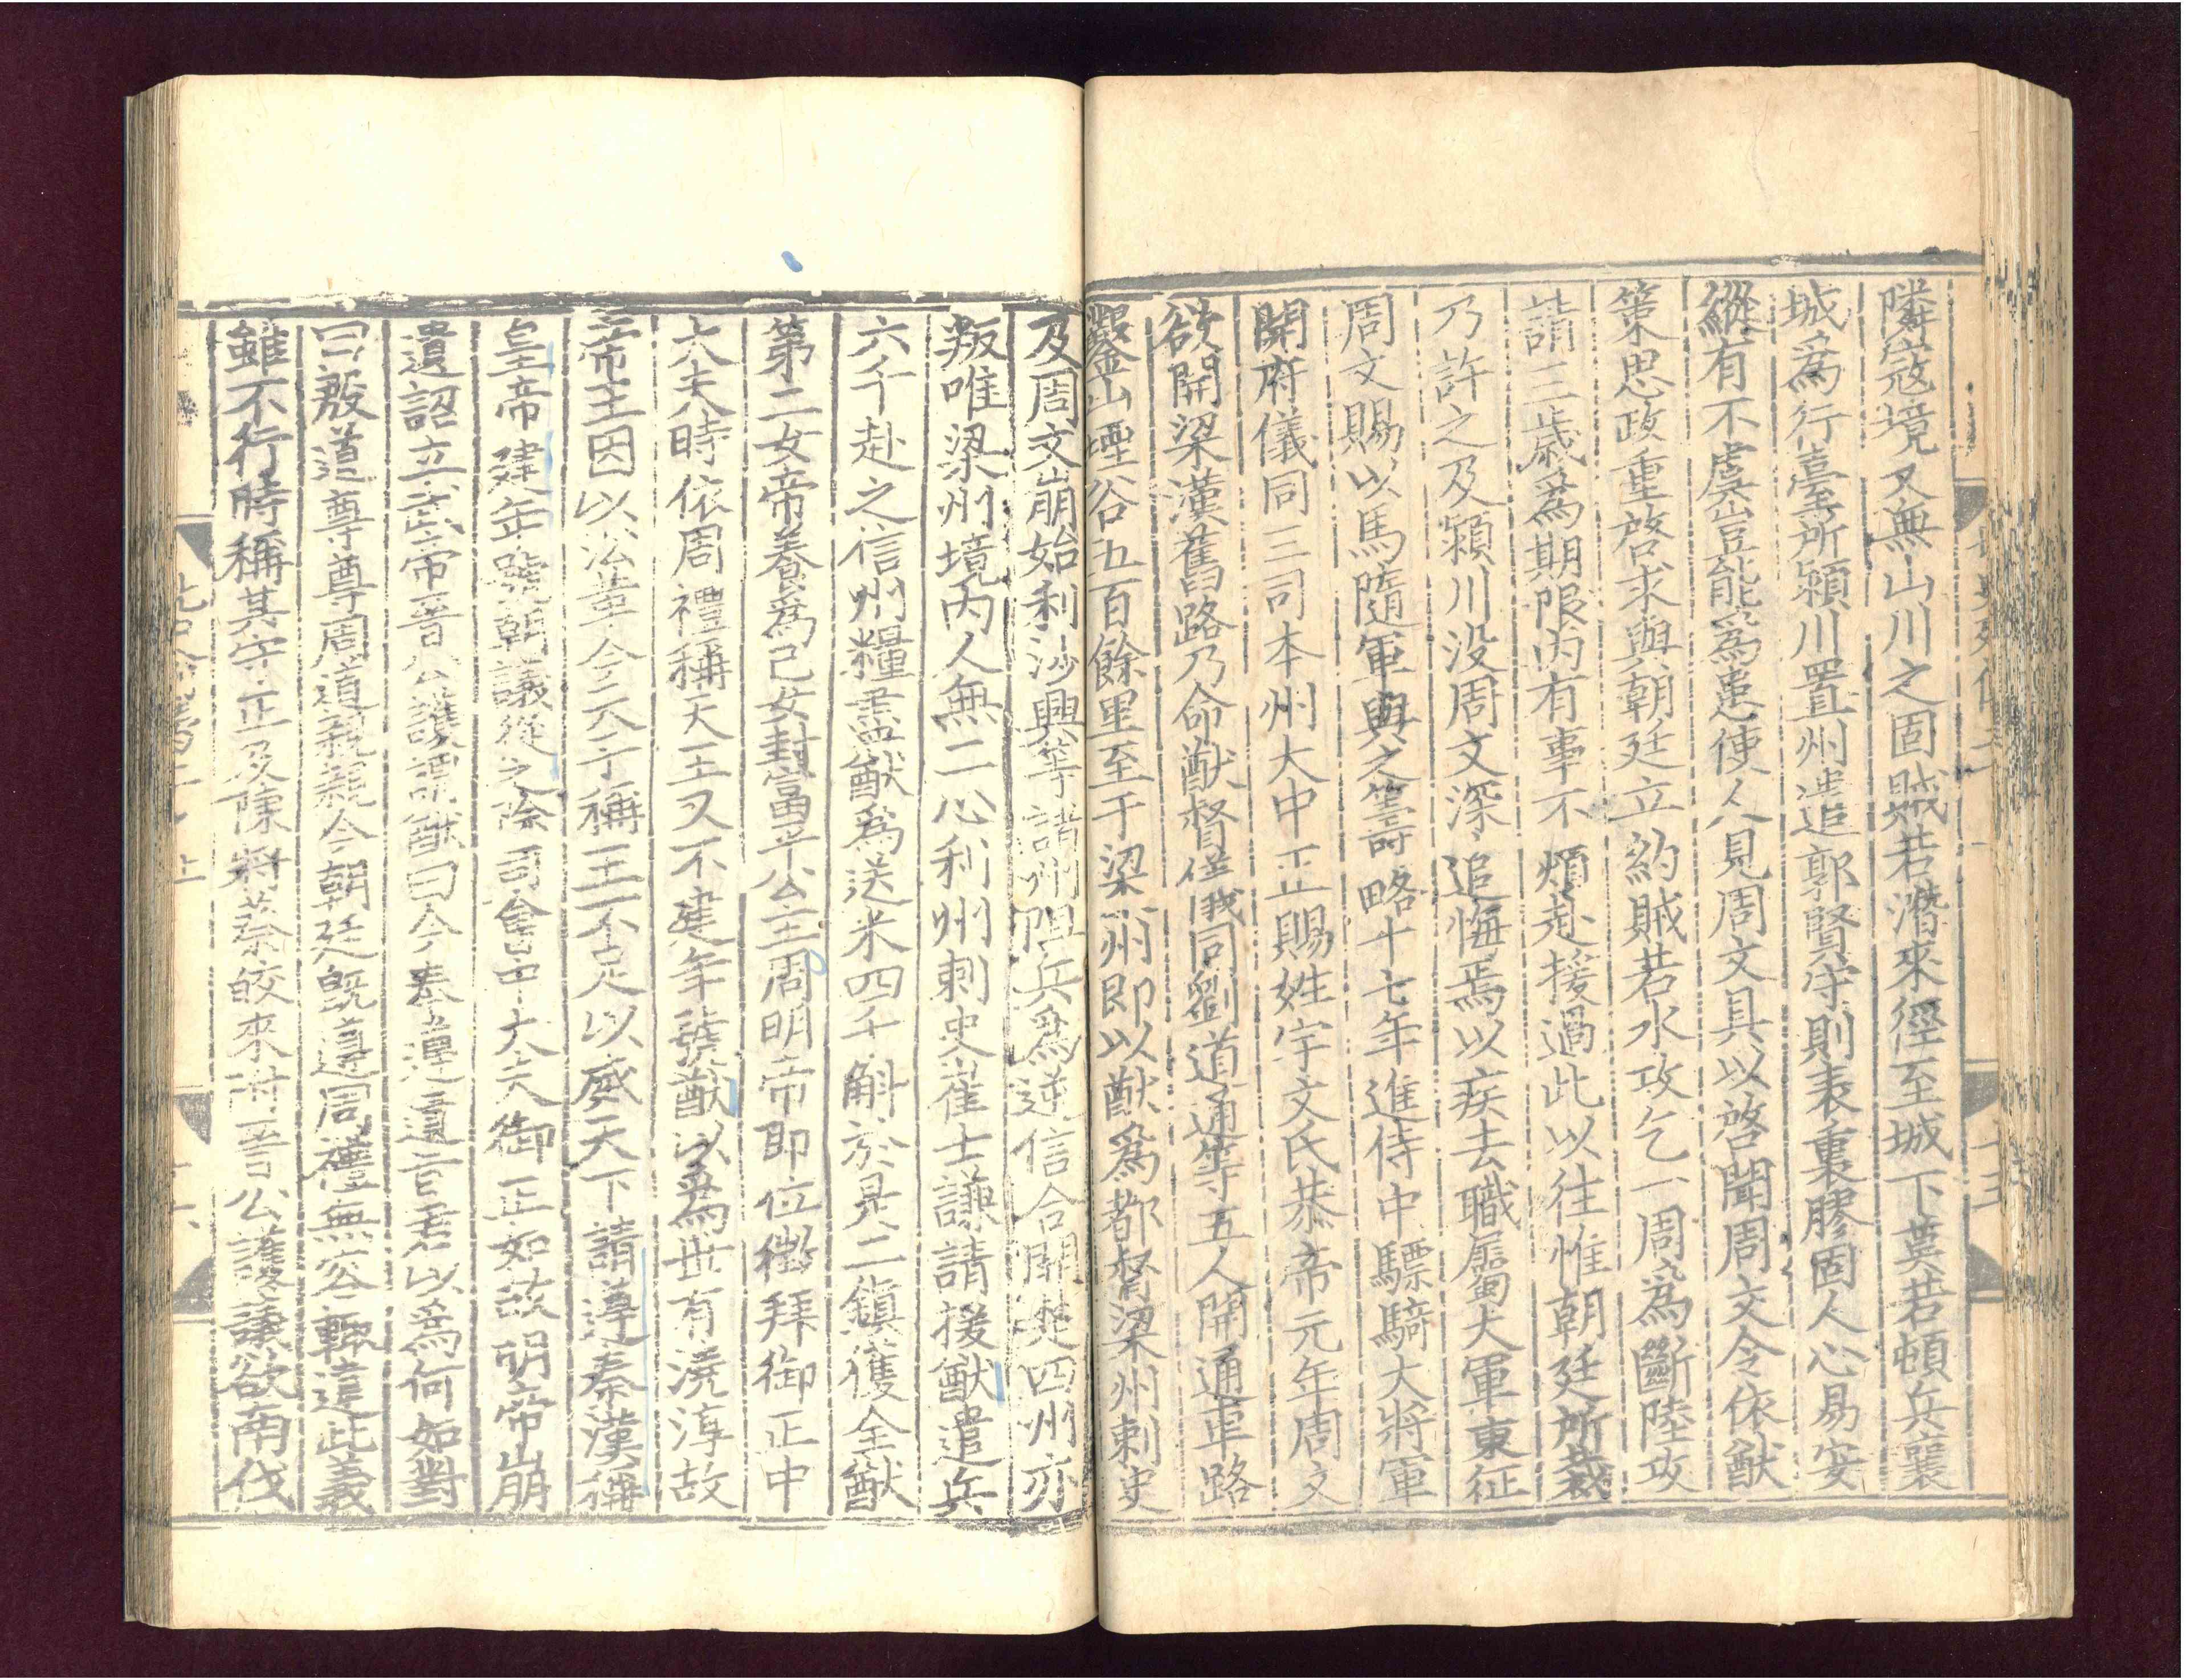 隣寇境又無山川之固賊若潛來徑至城下莫若頓兵襄
城爲行臺所潁川置州遣郭賢守則表裏膠固人心易安
縱有不虞豈能爲患使人見周文具以啓聞周文令依猷
策思政重啓求與朝廷立約賊若水攻乞一周爲斷陸攻
請三歲爲期限內有事不煩赴援過此以往惟朝廷所裁
乃許之及潁川没周文深追悔焉以疾去職屬大軍東征
周文賜以馬隨軍與之籌略十七年進侍中驃騎大將軍
開府儀同三司本州大中正賜姓宇文氏恭帝元年周文
欲開梁漢舊路乃命猷督儀同劉道通等五人開通車路
鑿山堙谷五百餘里至于梁州即以猷爲都督梁州刺史
及周文崩始利沙興等諸州阻兵爲逆信合開楚四州亦
叛唯梁州境內人無二心利州刺史崔士謙請援猷遣兵
六千赴之信州糧盡猷爲送米四千斛於是二鎮獲全猷
第二女帝養爲己女封富平公主周明帝即位徵拜御正中
大夫時依周禮稱天王又不建年號猷以爲世有澆淳故
帝王因以沿革今天子稱王不足以威天下請遵秦漢稱
皇帝建年號朝議從之除司會中大夫御正如故明帝崩
遺詔立武帝晉公護謂猷曰今奉遵遺旨意以爲何如對
曰殷道尊尊周道親親今朝廷旣遵周禮無容輒違此義
雖不行時稱其守正及陳將蔡皎來附晉公護議欲南伐